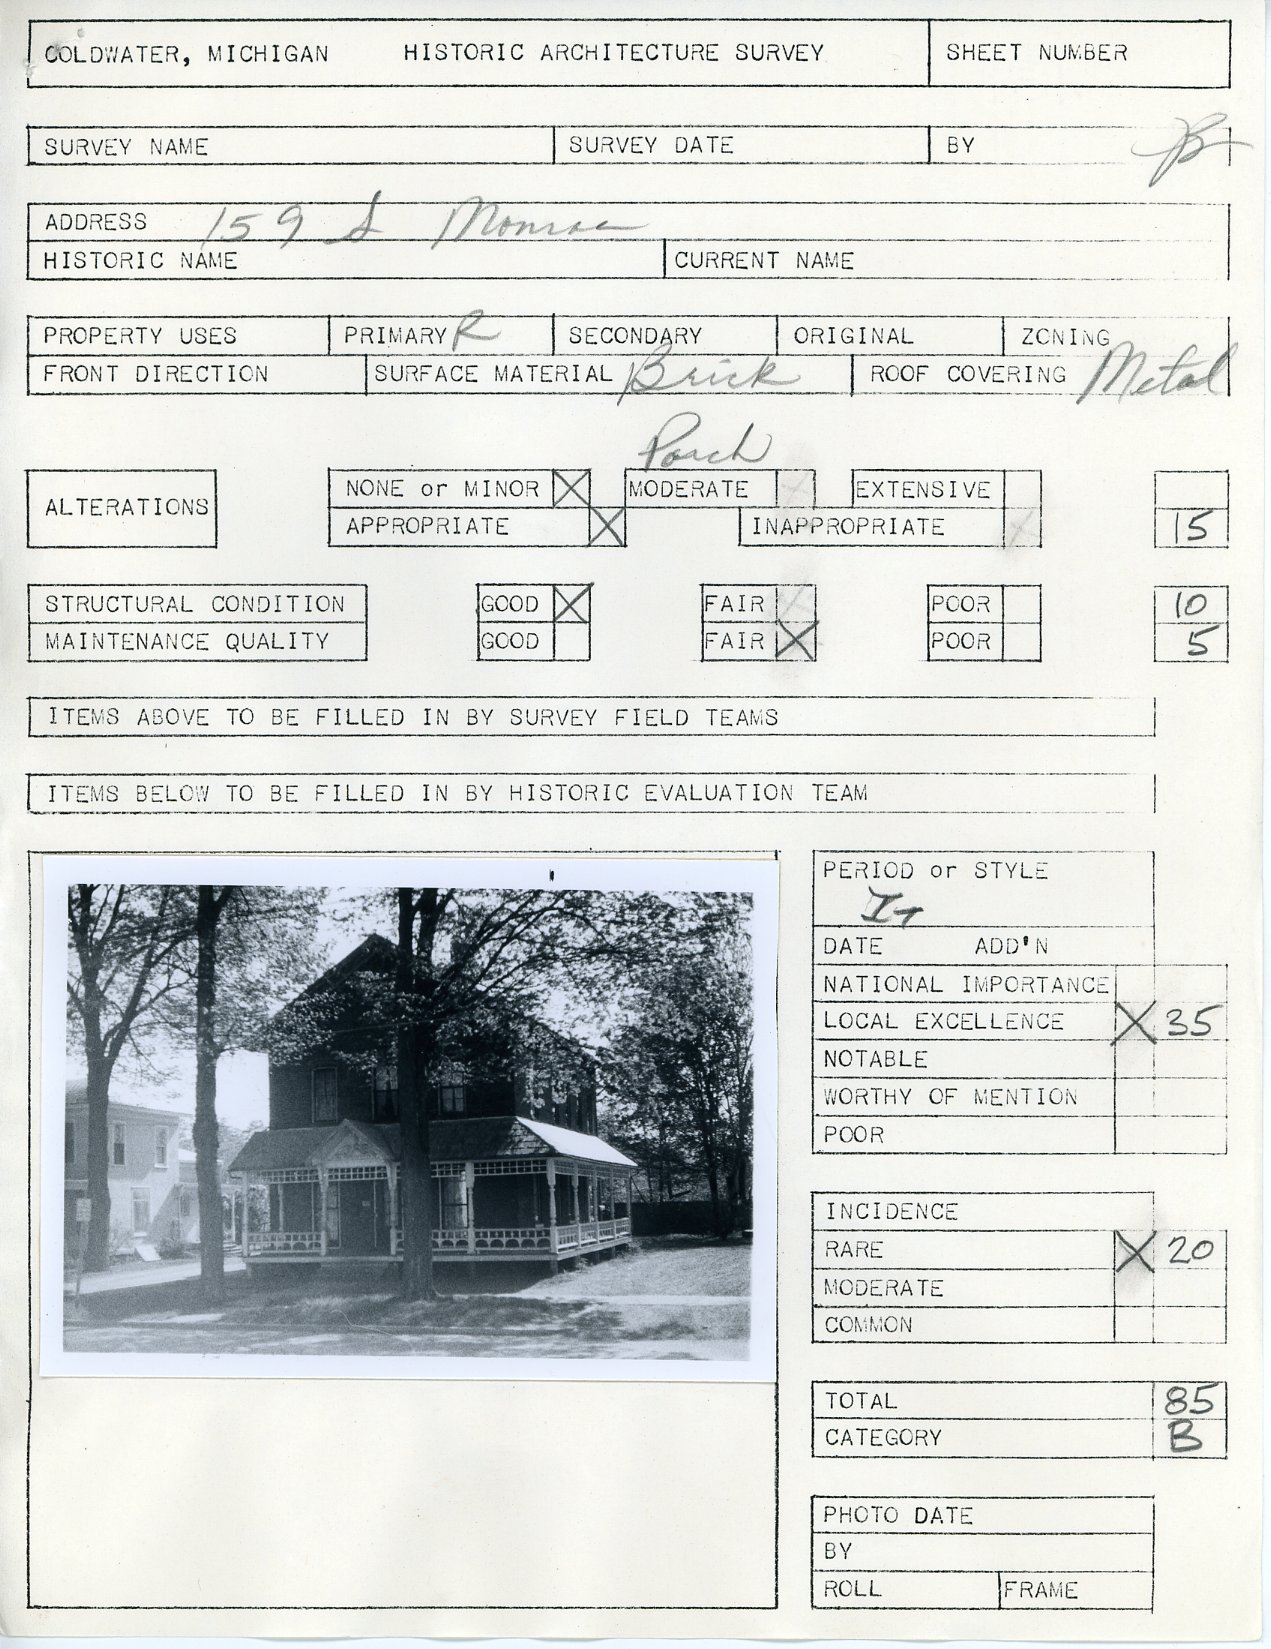 COLDWATER, MICHIGAN HISTORIC ARCHITECTURE SURVEY SHEET NUMBER
SURVEY NAME SURVEY DATE BY B
ADDRESS 159 S Monroe
HISTORIC NAME CURRENT NAME
PROPERTY USES PRIMARY R SECONDARY ORIGINAL ZONING
FRONT DIRECTION SURFACE MATERIAL Brick ROOF COVERING Metal
Porch
ALTERATIONS
NONE or MINOR X MODERATE X EXTENSIVE
APPROPRIATE X INAPPROPRIATE X 15
STRUCTURAL CONDITION GOOD X FAIR X POOR 10
MAINTENANCE QUALITY GOOD FAIR X POOR 5
ITEMS ABOVE TO BE FILLED IN BY SURVEY FIELD TEAMS
ITEMS BELOW TO BE FILLED IN BY HISTORIC EVALUATION TEAM
PERIOD or STYLE
IT
DATE ADD'N
NATIONAL IMPORTANCE
LOCAL EXCELLENCE X 35
NOTABLE
WORTHY OF MENTION
POOR
INCIDENCE
RARE X 20
MODERATE
COMMON
TOTAL 85
CATEGORY B
PHOTO DATE
BY
ROLL FRAME